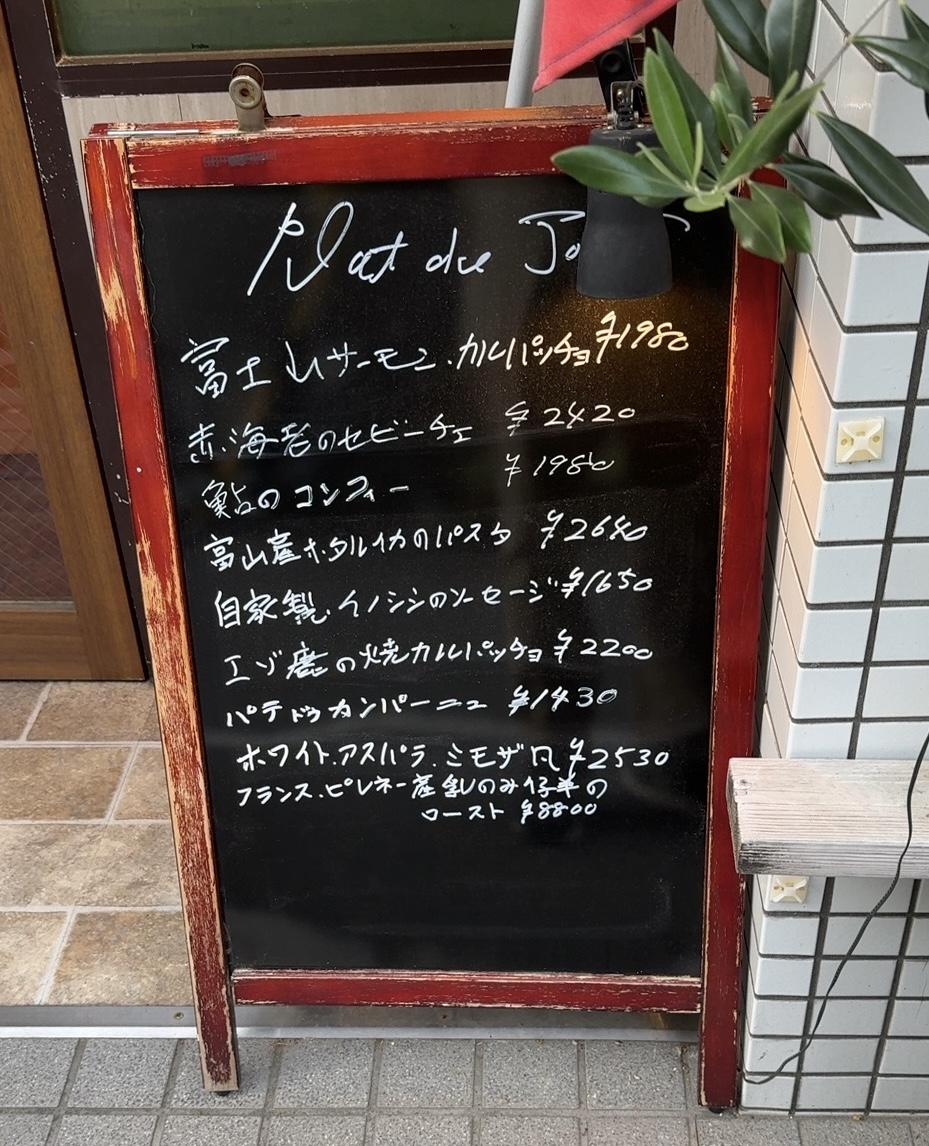 Plat du Jo
富士山サーモン.カルパッチョ ¥1980
赤海老のセビーチェ ¥2420
鮎のコンフィー ¥1980
富山産ホタルイカのパスタ ¥2640
自家製.イノシシのソーセージ ¥1650
エゾ鹿の焼カルパッチョ ¥2200
パテドゥカンパーニュ ¥1430
ホワイト.アスパラ.ミモザ風 ¥2530
フランス.ピレネー産乳のみ仔羊の
ロースト ¥8800